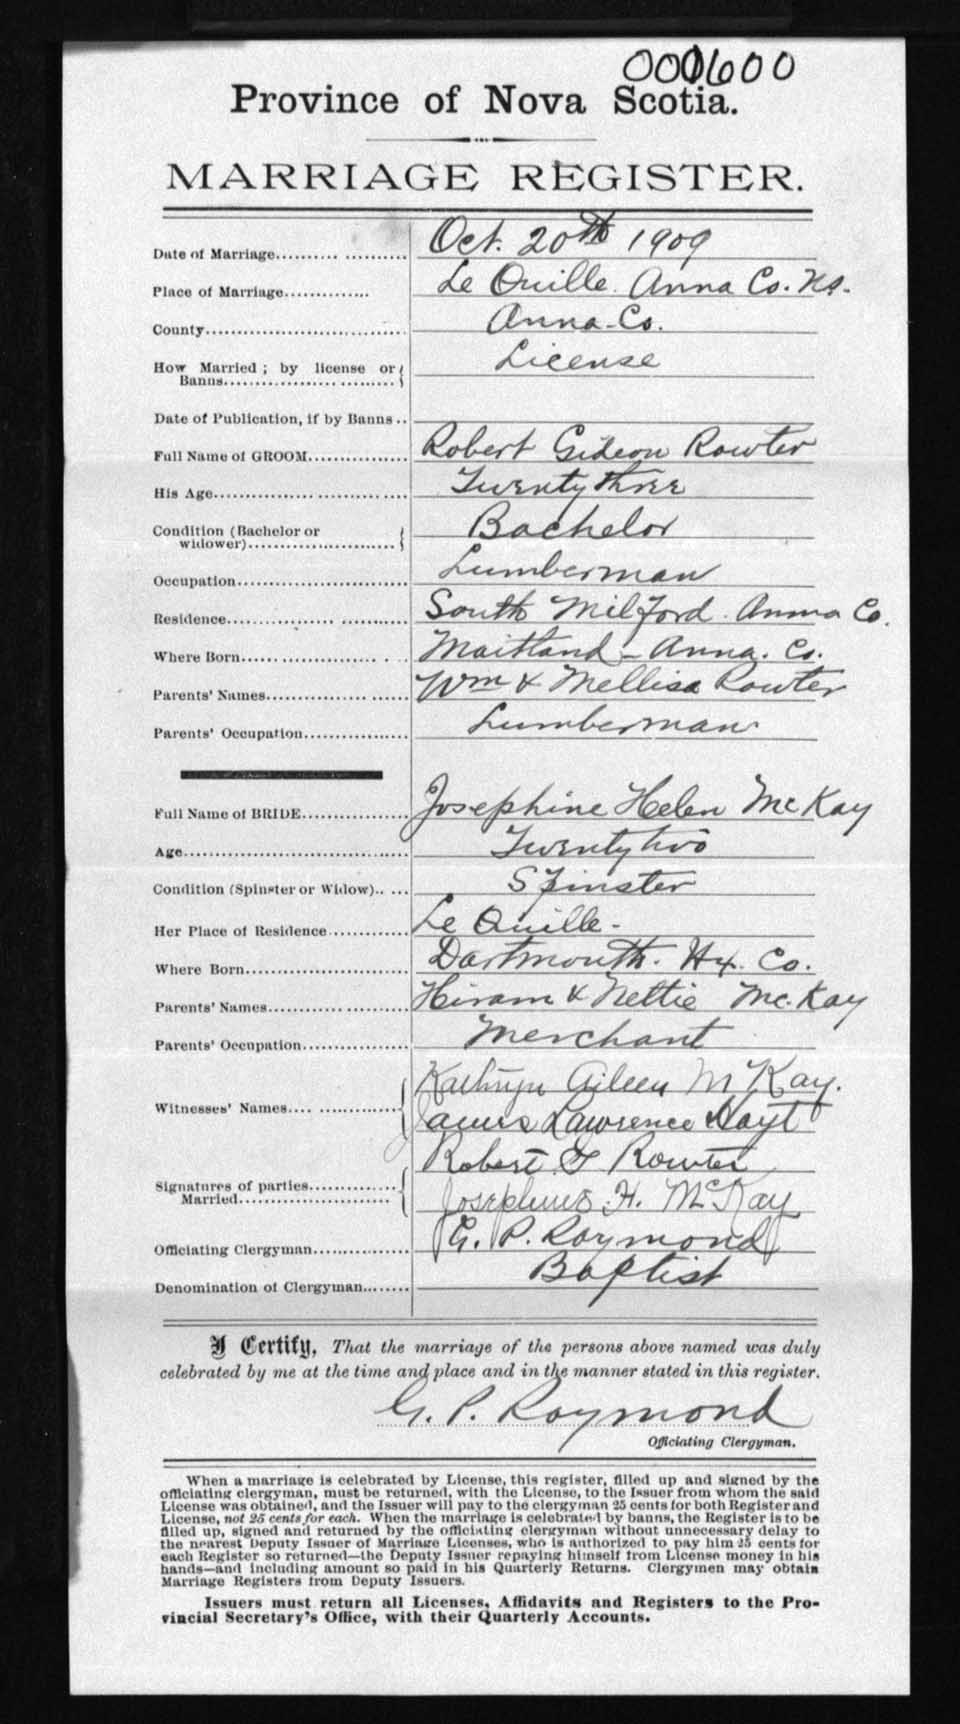 001600
Province of Nova Scotia.
MARRIAGE REGISTER.
Date of Marriage.......... .......... Oct. 20th 1909
Place of Marriage.............. Le Quille. Anna Co. N.S.
County................................ Anna-Co.
How Married ; by license or License
Banns.................. ..........
Date of Publication, if by Banns ..
Full Name of GROOM............... Robert Gideon Rowter
His Age.................. ............... Twenty three
Condition (Bachelor or Bachelor
widower)..........................
Occupation.......................... Lumberman
Residence................ ............ South Milford. Anna Co.
Where Born..................... . . Maitland - Anna. Co.
Parents' Names............... ...... Wm & Mellisa Rowter
Parents' Occupation................ Lumberman
Full Name of BRIDE................ Josephine Helen McKay
Age.................................... Twenty two
Condition (Spinster or Widow).. .... Spinster
Her Place of Residence............ Le Quille -
Where Born......................... Dartmouth. Hx. Co.
Parents' Names............ .......... Hiram & Nettie Mc.Kay
Parents' Occupation................ Merchant
Kathryn Aileen McKay.
Witnesses' Names.... .............
James Lawrence Hoyt
Robert G Rowter
Signatures of parties..............
Married........................ Josephine H. McKay
Officiating Clergyman.............. G. P. Raymond
Denomination of Clergyman....... Baptist
I Certify, That the marriage of the persons above named was duly
celebrated by me at the time and place and in the manner stated in this register.
G. P. Raymond
Officiating Clergyman.
When a marriage is celebrated by License, this register, filled up and signed by the
officiating clergyman, must be returned, with the License, to the Issuer from whom the said
License was obtained, and the Issuer will pay to the clergyman 25 cents for both Register and
License, not 25 cents for each. When the marriage is celebrated by banns, the Register is to be
filled up, signed and returned by the officiating clergyman without unnecessary delay to
the nearest Deputy Issuer of Marriage Licenses, who is authorized to pay him 25 cents for
each Register so returned—the Deputy Issuer repaying himself from License money in his
hands—and including amount so paid in his Quarterly Returns. Clergymen may obtain
Marriage Registers from Deputy Issuers.
Issuers must return all Licenses, Affidavits and Registers to the Pro-
vincial Secretary's Office, with their Quarterly Accounts.